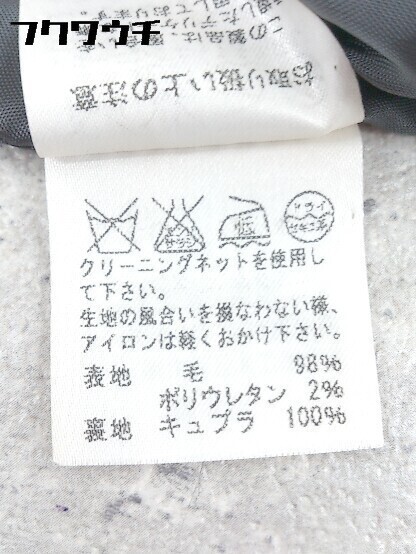 フクワウチ
お取り扱い上の注意
この製品は
エンソ サラシ
低
ドライ
セキユ系
クリーニングネットを使用し
て下さい。
生地の風合いを損なわない様、
アイロンは軽くおかけ下さい。
表地 毛 98%
ポリウレタン 2%
裏地 キュプラ 100%